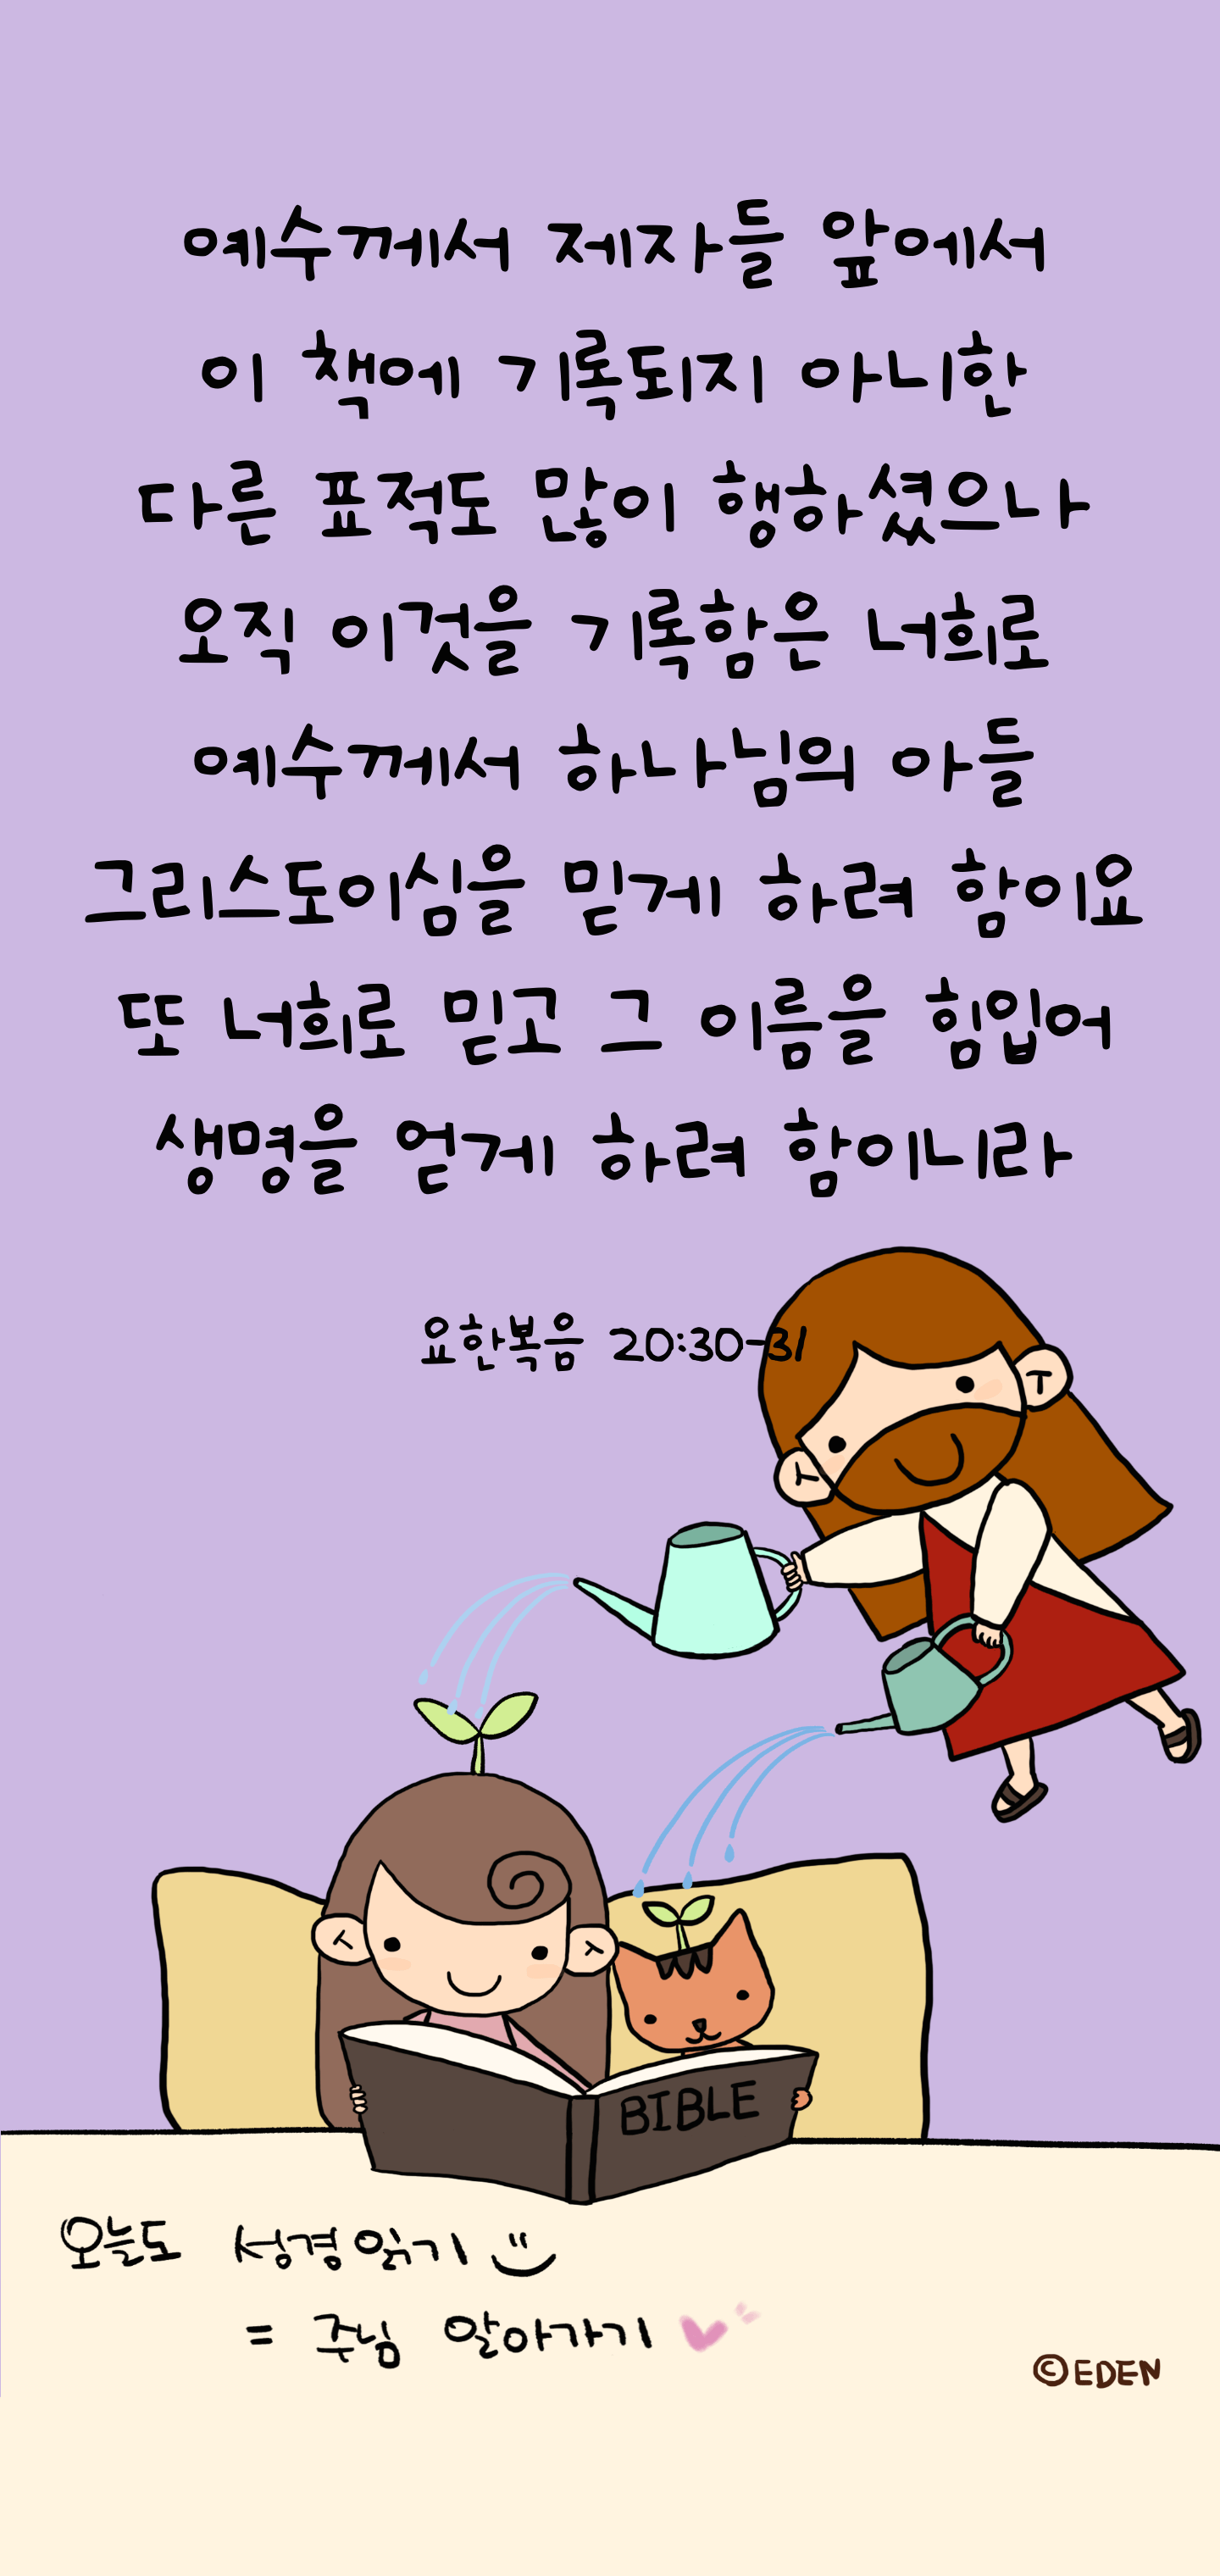 예수께서 제자들 앞에서
이 책에 기록되지 아니한
다른 표적도 많이 행하셨으나
오직 이것을 기록함은 너희로
예수께서 하나님의 아들
그리스도이심을 믿게 하려 함이요
또 너희로 믿고 그 이름을 힘입어
생명을 얻게 하려 함이니라
요한복음 20:30-31
BIBLE
오늘도 성경읽기
= 주님 알아가기
©EDEN